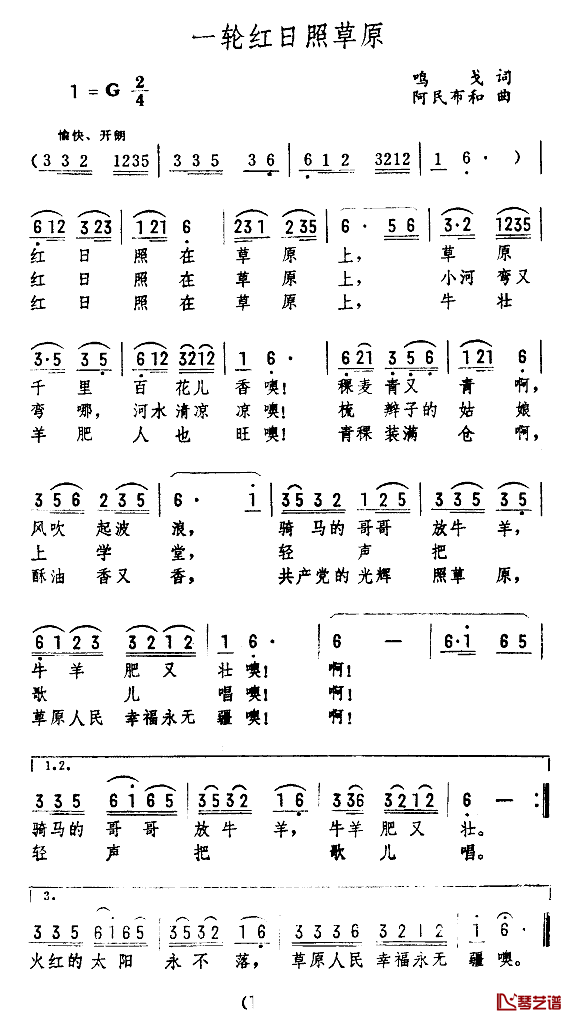 一轮红日照草原
1 = G 2/4
鸣 戈 词
阿民布和 曲
愉快、开朗
( 3 3 2 1235 | 3 3 5 3 6 | 6 1 2 3212 | 1 6 · ) |
6 12 3 23 | 1 21 6 | 231 2 35 | 6 · 5 6 | 3 · 2 1235 |
红 日 照 在 草 原 上， 草 原
红 日 照 在 草 原 上， 小河 弯又
红 日 照 在 草 原 上， 牛 壮
3 · 5 3 5 | 6 12 3212 | 1 6 · | 6 21 3 5 6 | 1 21 6 |
千 里 百 花儿 香噢！ 稞麦 青又 青 啊，
弯 哪， 河水 清凉 凉噢！ 梳 辫子的 姑 娘
羊 肥 人 也 旺噢！ 青稞 装满 仓 啊，
3 5 6 2 3 5 | 6 · 1 | 35 3 2 1 2 5 | 3 5 6 5 |
风吹 起波 浪， 骑 马的 哥哥 放牛 羊，
上 学 堂， 轻 声 把
酥油 香又 香， 共产党的 光辉 照草 原，
6 1 2 3 3 2 1 2 | 1 6 · | 6 — | 6 · 1 6 5 |
牛 羊 肥 又 壮 噢！ 啊！
歌 儿 唱噢！ 啊！
草原人民 幸福永无 疆噢！ 啊！
1.2.
3 3 5 6 1 6 5 | 35 3 2 1 6 | 3 36 3 2 1 2 | 6 — :|
骑马的 哥 哥 放 牛 羊， 牛羊 肥 又 壮。
轻 声 把 歌 儿 唱。
3.
3 3 5 6165 | 35 3 2 1 6 | 3 3 3 6 3 2 1 2 | 1 6 · |
火红的 太 阳 永 不 落， 草原人民 幸福永无 疆 噢。
(1
琴艺谱